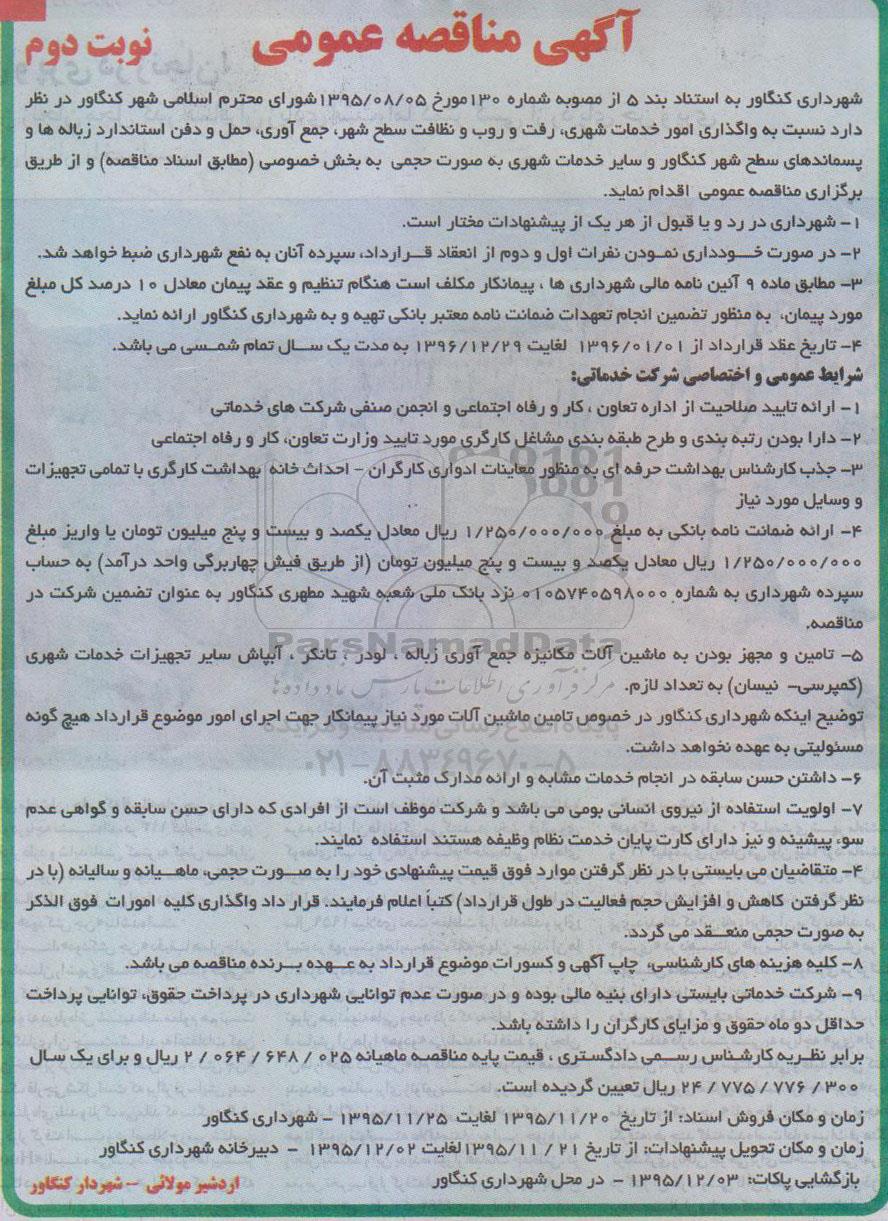 آگهی مناقصه عمومی
نوبت دوم
شهرداری کنگاور به استناد بند ۵ از مصوبه شماره ۱۳۰مورخ ۱۳۹۵/۰۸/۰۵شورای محترم اسلامی شهر کنگاور در نظر
دارد نسبت به واگذاری امور خدمات شهری، رفت و روب و نظافت سطح شهر، جمع آوری، حمل و دفن استاندارد زباله ها و
پسماندهای سطح شهر کنگاور و سایر خدمات شهری به صورت حجمی به بخش خصوصی (مطابق اسناد مناقصه) و از طریق
برگزاری مناقصه عمومی اقدام نماید.
۱– شهرداری در رد و یا قبول از هر یک از پیشنهادات مختار است.
۲– در صورت خـــودداری نمـودن نفرات اول و دوم از انعقاد قـــرارداد، سپرده آنان به نفع شهرداری ضبط خواهد شد.
۳– مطابق ماده ۹ آئین نامه مالی شهرداری ها ، پیمانکار مکلف است هنگام تنظیم و عقد پیمان معادل ۱۰ درصد کل مبلغ
مورد پیمان، به منظور تضمین انجام تعهدات ضمانت نامه معتبر بانکی تهیه و به شهرداری کنگاور ارائه نماید.
۴– تاریخ عقد قرارداد از ۱۳۹۶/۰۱/۰۱ لغایت ۱۳۹۶/۱۲/۲۹ به مدت یک ســـال تمام شمـــسی می باشد.
شرایط عمومی و اختصاصی شرکت خدماتی:
۱– ارائه تایید صلاحیت از اداره تعاون ، کار و رفاه اجتماعی و انجمن صنفی شرکت های خدماتی
۲– دارا بودن رتبه بندی و طرح طبقه بندی مشاغل کارگری مورد تایید وزارت تعاون، کار و رفاه اجتماعی
۳– جذب کارشناس بهداشت حرفه ای به منظور معاینات ادواری کارگران – احداث خانه بهداشت کارگری با تمامی تجهیزات
و وسایل مورد نیاز
۴– ارائه ضمانت نامه بانکی به مبلغ ۱/۲۵۰/۰۰۰/۰۰۰ ریال معادل یکصد و بیست و پنج میلیون تومان یا واریز مبلغ
۱/۲۵۰/۰۰۰/۰۰۰ ریال معادل یکصد و بیست و پنج میلیون تومان (از طریق فیش چهاربرگی واحد درآمد) به حساب
سپرده شهرداری به شماره ۰۱۰۵۷۴۰۵۹۸۰۰۰ نزد بانک ملی شعبه شهید مطهری کنگاور به عنوان تضمین شرکت در
مناقصه.
ParsNamadData
۵– تامین و مجهز بودن به ماشین آلات مکانیزه جمع آوری زباله ، لودر ، تانکر ، آبپاش سایر تجهیزات خدمات شهری
(کمپرسی– نیسان) به تعداد لازم.
مرکز فرآوری اطلاعات پارس نماد داده ها
توضیح اینکه شهرداری کنگاور در خصوص تامین ماشین آلات مورد نیاز پیمانکار جهت اجرای امور موضوع قرارداد هیچ گونه
مسئولیتی به عهده نخواهد داشت.
۰۲۱-۸۸۳۴۹۶۷۰-۵
۶– داشتن حسن سابقه در انجام خدمات مشابه و ارائه مدارک مثبت آن.
۷– اولویت استفاده از نیروی انسانی بومی می باشد و شرکت موظف است از افرادی که دارای حسن سابقه و گواهی عدم
سوء پیشینه و نیز دارای کارت پایان خدمت نظام وظیفه هستند استفاده نمایند.
۴– متقاضیان می بایستی با در نظر گرفتن موارد فوق قیمت پیشنهادی خود را به صــورت حجمی، ماهـیانه و سالیانه (با در
نظر گرفتن کاهش و افزایش حجم فعالیت در طول قرارداد) کتباً اعلام فرمایند. قرار داد واگذاری کلیه امورات فوق الذکر
به صورت حجمی منعـــقد می گردد.
۸– کلیه هزینه های کارشناسی، چاپ آگهی و کسورات موضوع قرارداد به عـــهده بـــرنده مناقصه می باشد.
۹– شرکت خدماتی بایستی دارای بنیه مالی بوده و در صورت عدم توانایی شهرداری در پرداخت حقوق، توانایی پرداخت
حداقل دو ماه حقوق و مزایای کارگران را داشته باشد.
برابر نظـریه کارشناس رســمی دادگستری ، قیمت پایه مناقصه ماهیانه ۰۲۵ / ۶۴۸ / ۰۶۴ / ۲ ریال و برای یک سال
۳۰۰ / ۷۷۶ / ۷۷۵ / ۲۴ ریال تعیین گردیده است.
زمان و مکان فروش اسناد: از تاریخ ۱۳۹۵/۱۱/۲۰ لغایت ۱۳۹۵/۱۱/۲۵ – شهرداری کنگاور
زمان و مکان تحویل پیشنهادات: از تاریخ ۲۱ / ۱۳۹۵/۱۱لغایت ۱۳۹۵/۱۲/۰۲ – دبیرخانه شهرداری کنگاور
بازگشایی پاکات: ۱۳۹۵/۱۲/۰۳ – در محل شهرداری کنگاور
اردشیر مولائی – شهردار کنگاور